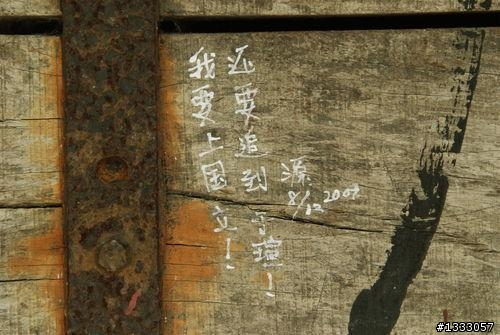 我要上国立!
还要追到可瑄!
源
8/12 2007
#1333057